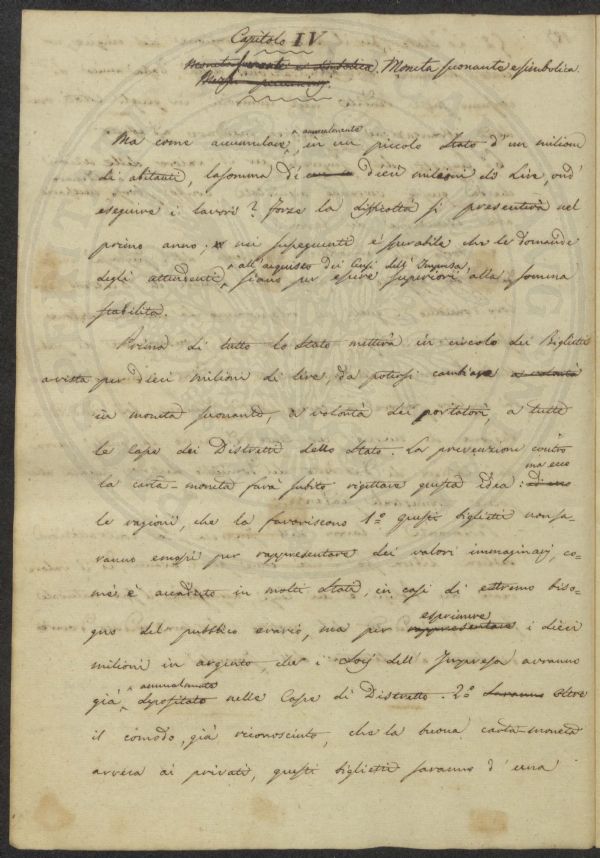 Capitolo IV.
Moneta suonante e simbolica. Moneta suonante e simbolica.
Ma come accumulare annualmente, in un piccolo Stato d'un milione
di abitanti, la somma di dieci milioni di Lire, ond'
eseguire i lavori? Forse la difficoltà si presentirà nel
primo anno; nei susseguenti è sperabile che le domande
degli attendenti all'acquisto dei Censi dell'Impresa, siano per essere superiori alla somma
stabilita.
Prima di tutto lo Stato metterà in circolo dei Biglietti
a vista per dieci milioni di lire, da potersi cambiare a volontà
in moneta suonante, a volontà dei portatori, a tutte
le Casse dei Distretti dello Stato. La prevenzione contro
la carta-moneta farà subito rigettare questa idea: ma ecco
le ragioni, che la favoriscono 1.º questi biglietti non sa-
ranno emessi per rappresentare dei valori immaginarj, co-
me è accaduto in molti Stati, in casi di estremo biso-
gno del pubblico erario, ma per rappresentare esprimere i dieci
milioni in argento, che i Socj dell'Impresa avranno
già annualmente depositato nelle Casse di Distretto. 2.º Saranno Oltre
il comodo, già riconosciuto, che la buona carta-moneta
arreca ai privati, questi biglietti saranno d'una